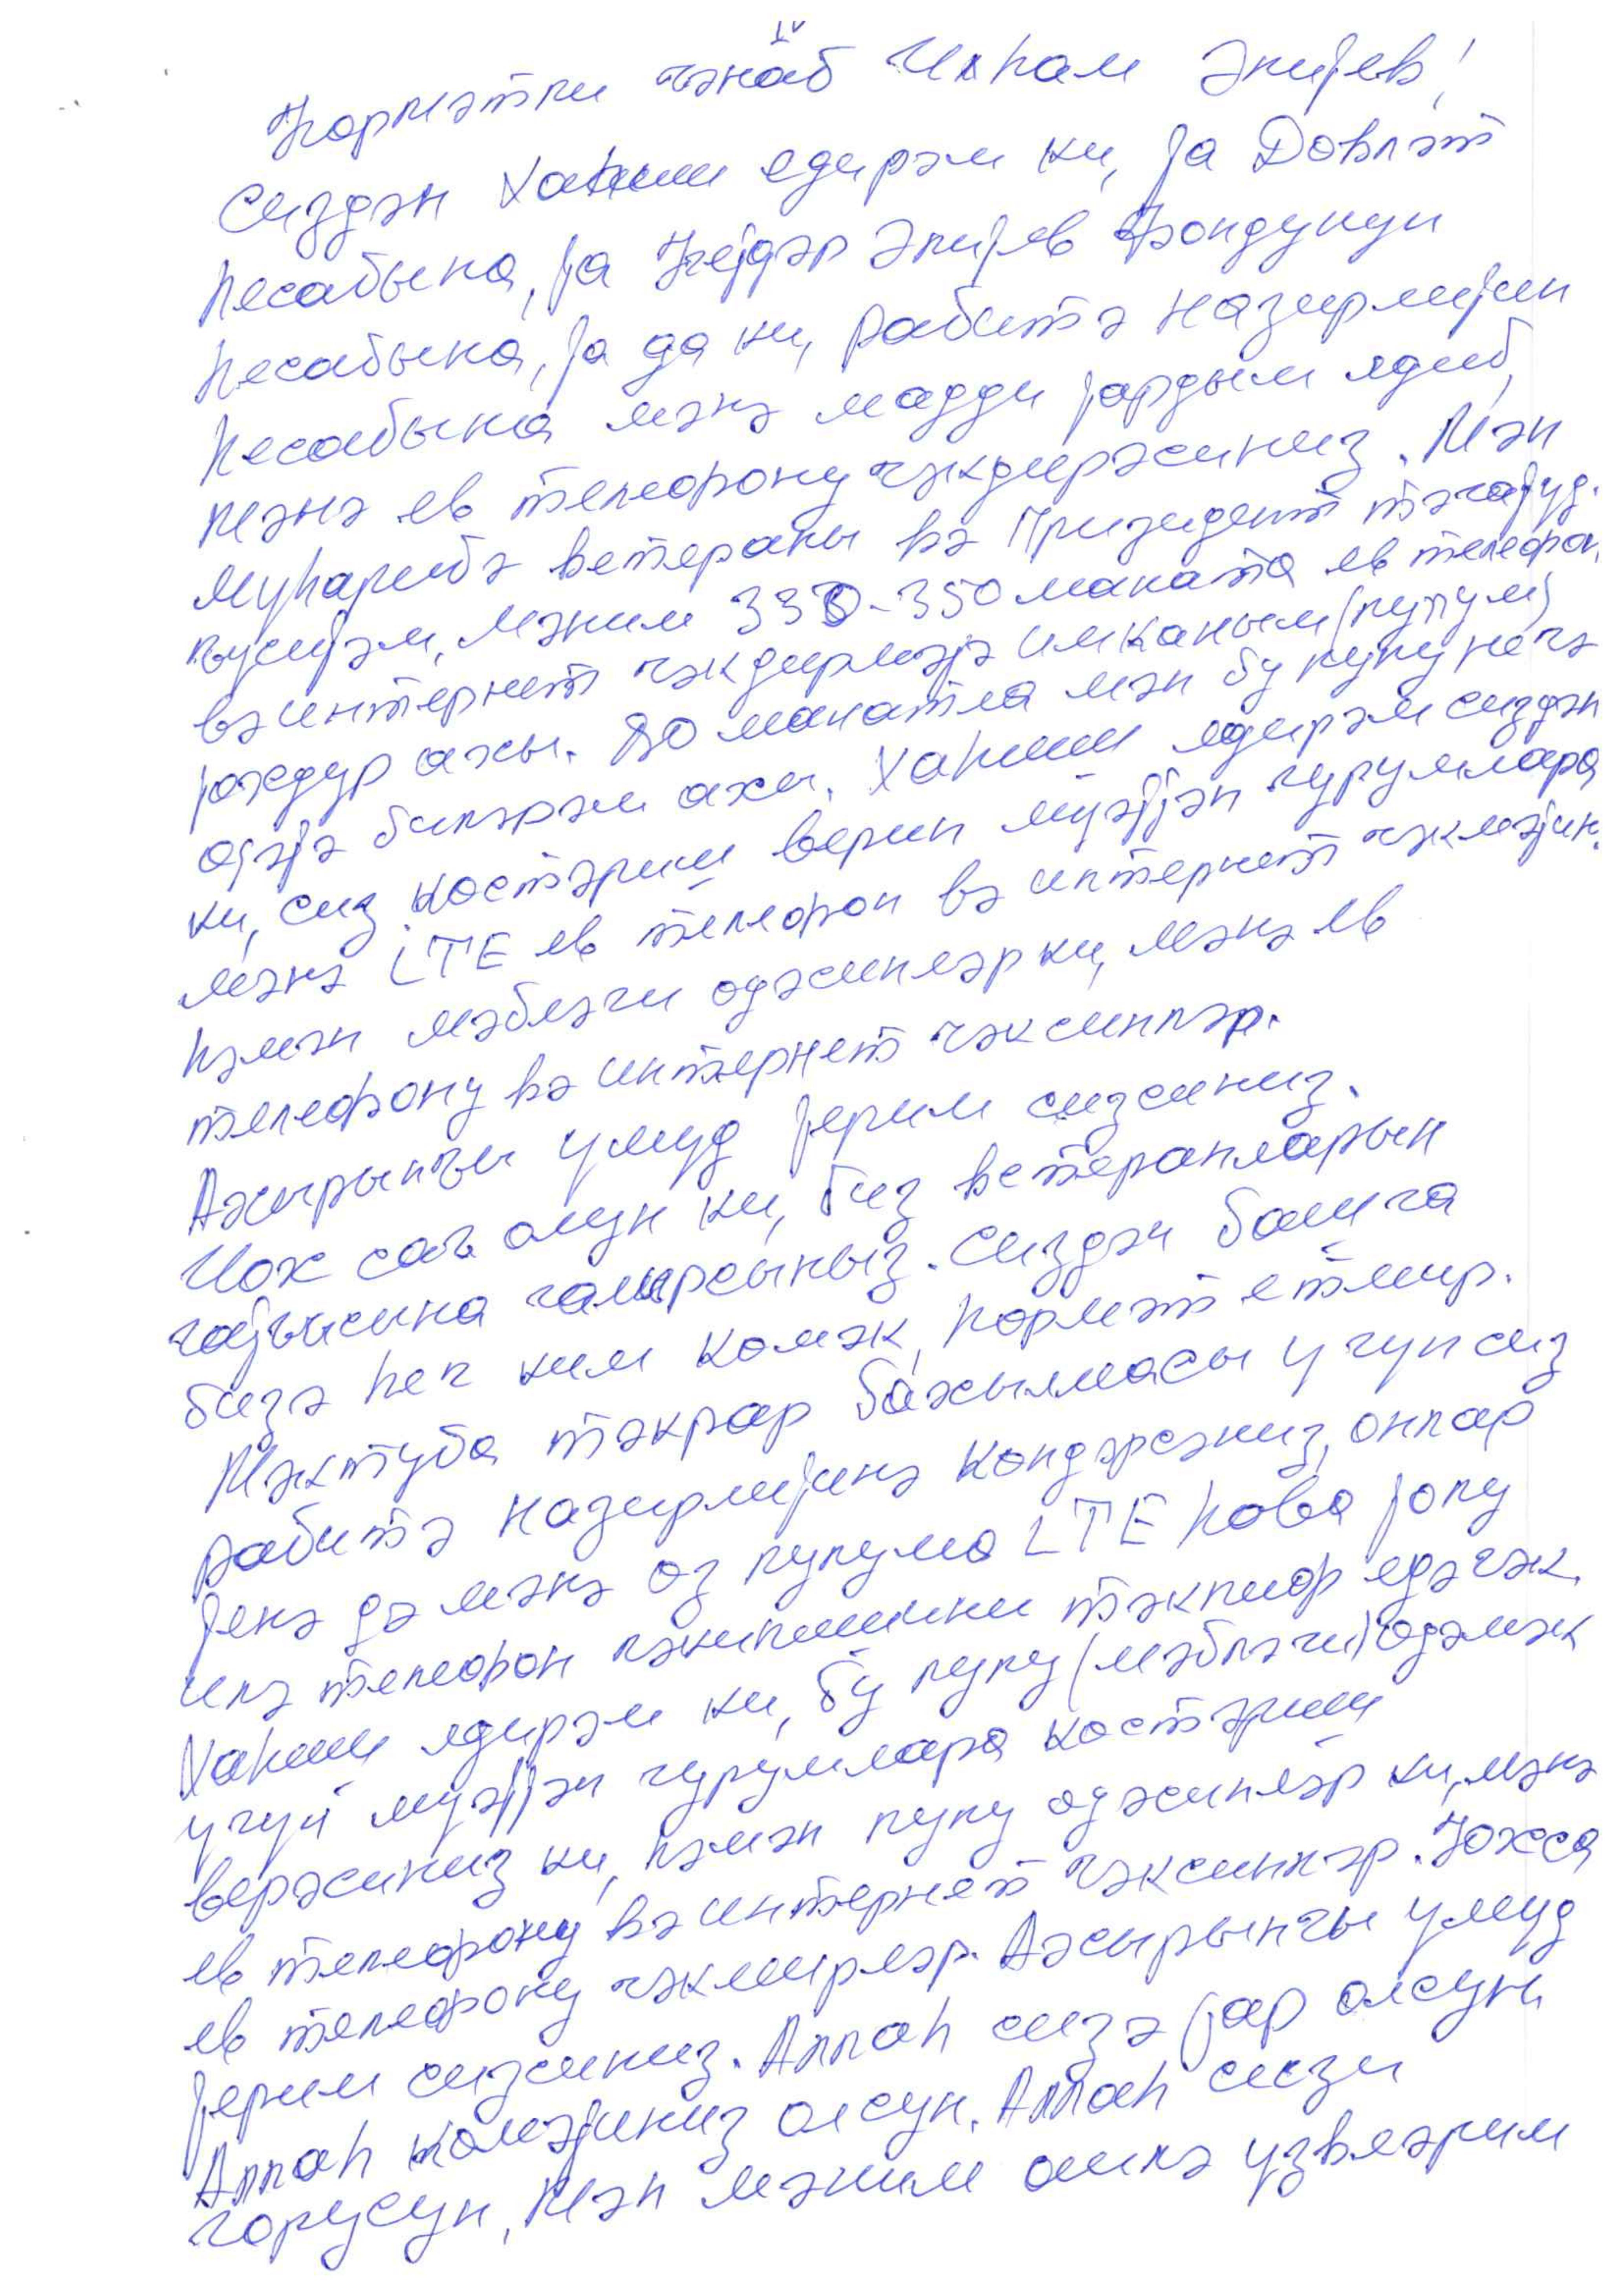 Һөрмәтли ҹәнаб Илһам Әлијев!
Сиздән хаһиш едирәм ки, ја Довләт
һесабына, ја Һејдәр Әлијев Фондунун
һесабына, ја да ки, рабитә назирлијин
һесабына мәнә мадди јардым едиб,
мәнә ев телефону чәкдирәсиниз. Мән
муһарибә ветераны вә Призидент тәгајуд.
чусујәм, мәним 330-350 маната ев телефон
вә интернет чәкдирмәјә имканым (пулум)
јохдур ахы. 80 манатла мән бу пулу нечә
одәјә биләрәм ахи. Хаһиш едирәм сиздән
ки, сиз костәриш верин мүәјјән гурумлара
мәнә LTE ев телефон вә интернет чәкмәјин.
һәмән мәбләғи одәсинләр ки, мәнә ев
телефону вә интернет чәксинләр.
Ахырынҹы умуд јерим сизсиниз.
Чох сағ олун ки, биз ветеранларын
гајғысына галырсыныз. Сиздән башга
бизә һеч ким комәк, һормәт етмир.
Мәктуба тәкрар бахылмасы учун сиз
рабитә назирлијинә кондәрсәниз, онлар
јенә дә мәнә оз пулума LTE һава јолу
илә телефон чәкилишини тәклиф едәҹәк.
Хаһиш едирәм ки, бу пулу (мәбләғи) одәмәк
учун муәјјән гурумлара костәриш
верәсиниз ки, һәмән пулу одәсинләр ки, мәнә
ев телефону вә интернет чәксинләр. Јохса
ев телефону чәкмирләр. Ахырынҹы умуд
јерим сизсиниз. Аллаһ сизә јар олсун
Аллаһ комәјиниз олсун. Аллаһ сизи
горусун, Мән мәним аилә үзвләрим